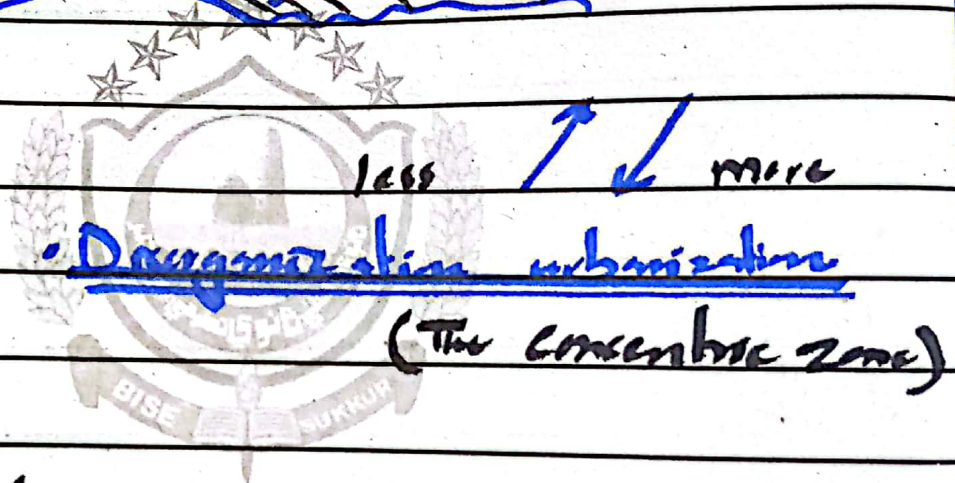 less more
• Disorganization urbanization
(The concentric zone)
BISE SUKKUR